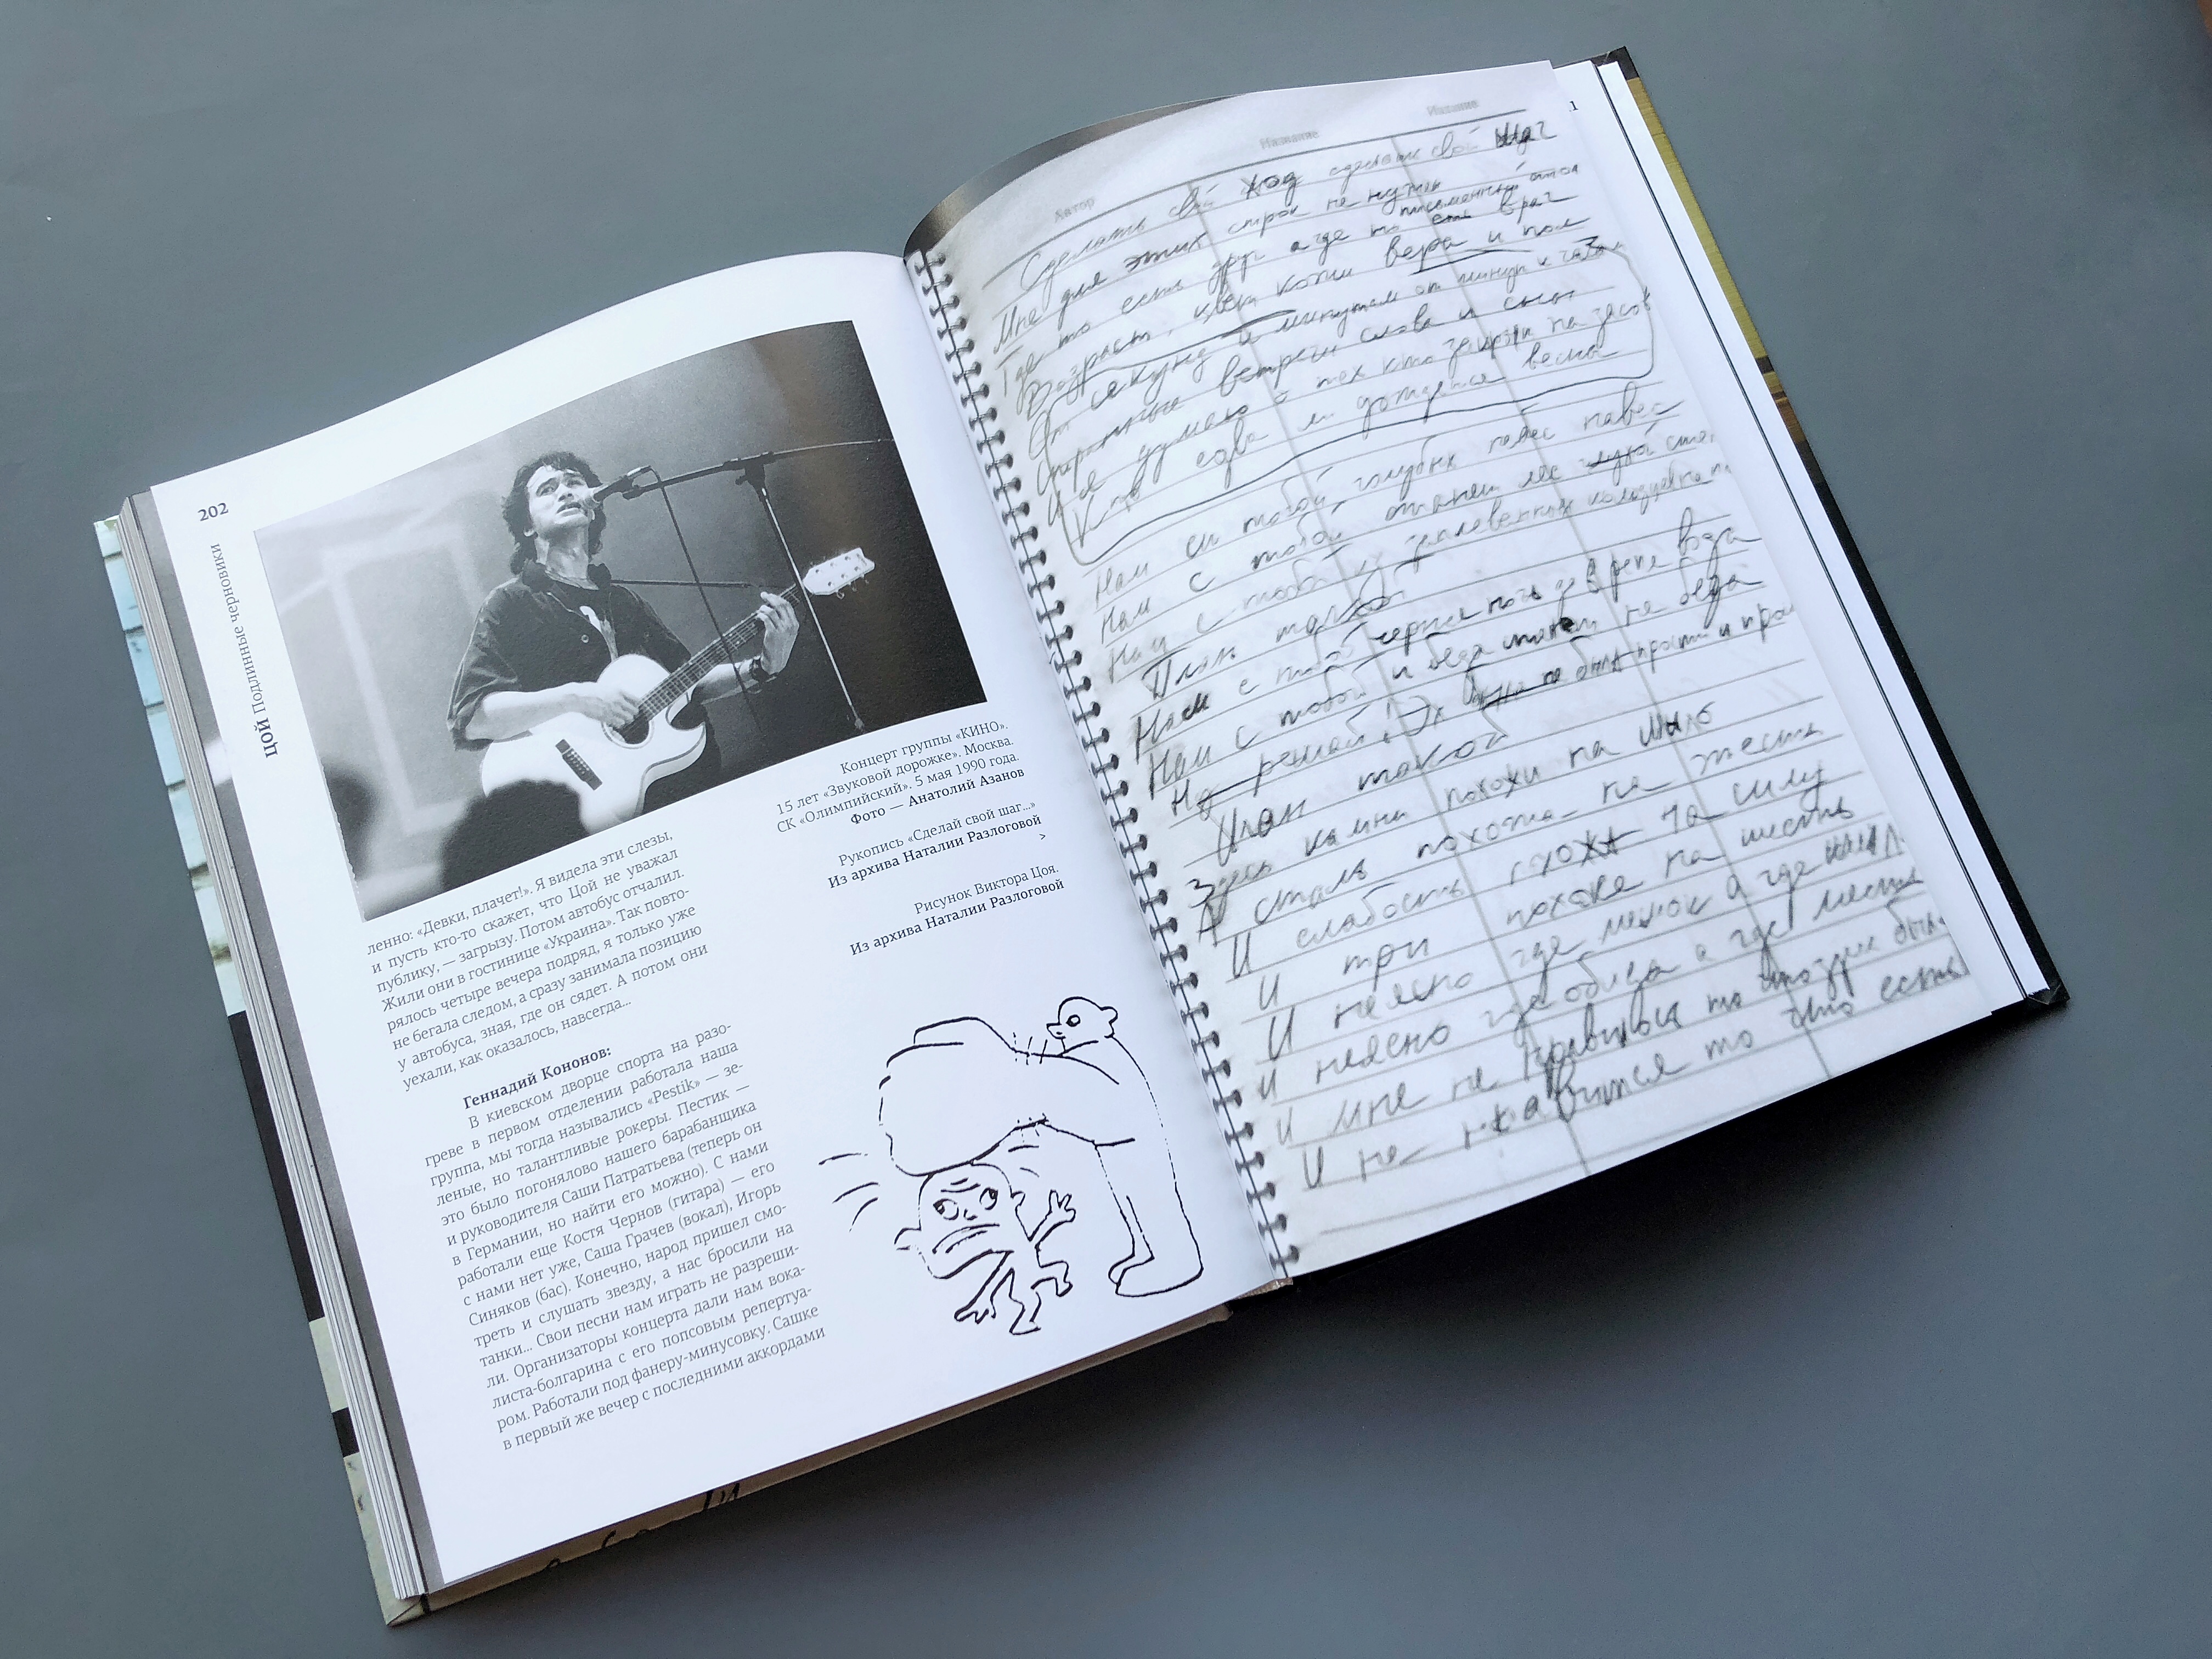 202
ЦОЙ Подлинные черновики
Концерт группы «КИНО».
15 лет «Звуковой дорожке». Москва.
СК «Олимпийский». 5 мая 1990 года.
Фото — Анатолий Азанов
Рукопись «Сделай свой шаг...»
Из архива Наталии Разлоговой
>
Рисунок Виктора Цоя.
Из архива Наталии Разлоговой
ленно: «Девки, плачет!». Я видела эти слезы,
и пусть кто-то скажет, что Цой не уважал
публику, — загрызу. Потом автобус отчалил.
Жили они в гостинице «Украина». Так повто-
рялось четыре вечера подряд, я только уже
не бегала следом, а сразу занимала позицию
у автобуса, зная, где он сядет. А потом они
уехали, как оказалось, навсегда...
Геннадий Кононов:
В киевском дворце спорта на разо-
греве в первом отделении работала наша
группа, мы тогда назывались «Pestik» — зе-
леные, но талантливые рокеры. Пестик —
это было погонялово нашего барабанщика
и руководителя Саши Патратьева (теперь он
в Германии, но найти его можно). С нами
работали еще Костя Чернов (гитара) — его
с нами нет уже, Саша Грачев (вокал), Игорь
Синяков (бас). Конечно, народ пришел смо-
треть и слушать звезду, а нас бросили на
танки... Свои песни нам играть не разреши-
ли. Организаторы концерта дали нам вока-
листа-болгарина с его попсовым репертуа-
ром. Работали под фанеру-минусовку. Сашке
в первый же вечер с последними аккордами
1
Автор Название Издание
Сделать свой ход сделать свой шаг
Мне для этих строк не нужен письменный стол
Где то есть друг а где то есть враг
Возраст, цвет кожи вера и пол
От секунд к минутам от минут к часам
встречи слова и сны
И я думаю о тех кто заперт на засов
Кто едва ли дождется весны
Нам с тобой голубых небес навес
Нам с тобой станет лес глухой
Нам с тобой из заплеванных колодцев не
План такой
Нам с тобой черная ночь да в реке вода
Нам с тобой и беда станет не беда
Ну решай! Эх была не была прости и
План такой
Здесь камни похожи на мыло
А сталь похожа на жесть
И слабость похожа на силу
И три похоже на шесть
И неясно где мешок а где
И неясно где обида а где месть
И мне не нравилось то что здесь было
И не нравится то что есть